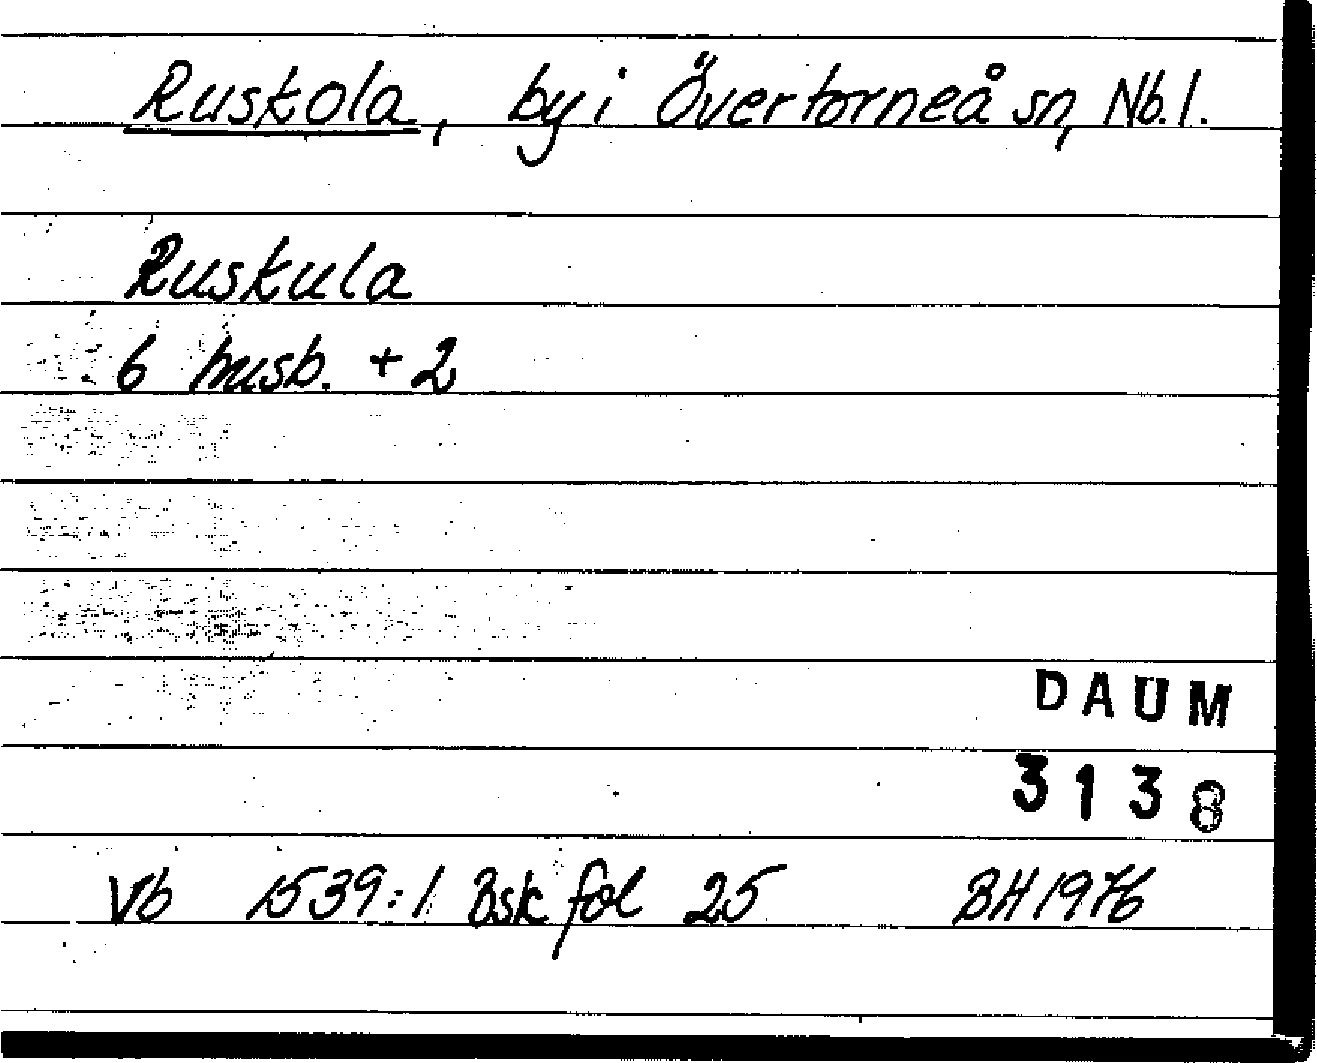 Ruskola, by i Övertorneå sn, Nb. l.
Ruskula
6 husb. + 2
DAUM
3138
Vb 1539:1 Bsk fol 25 BH 1976